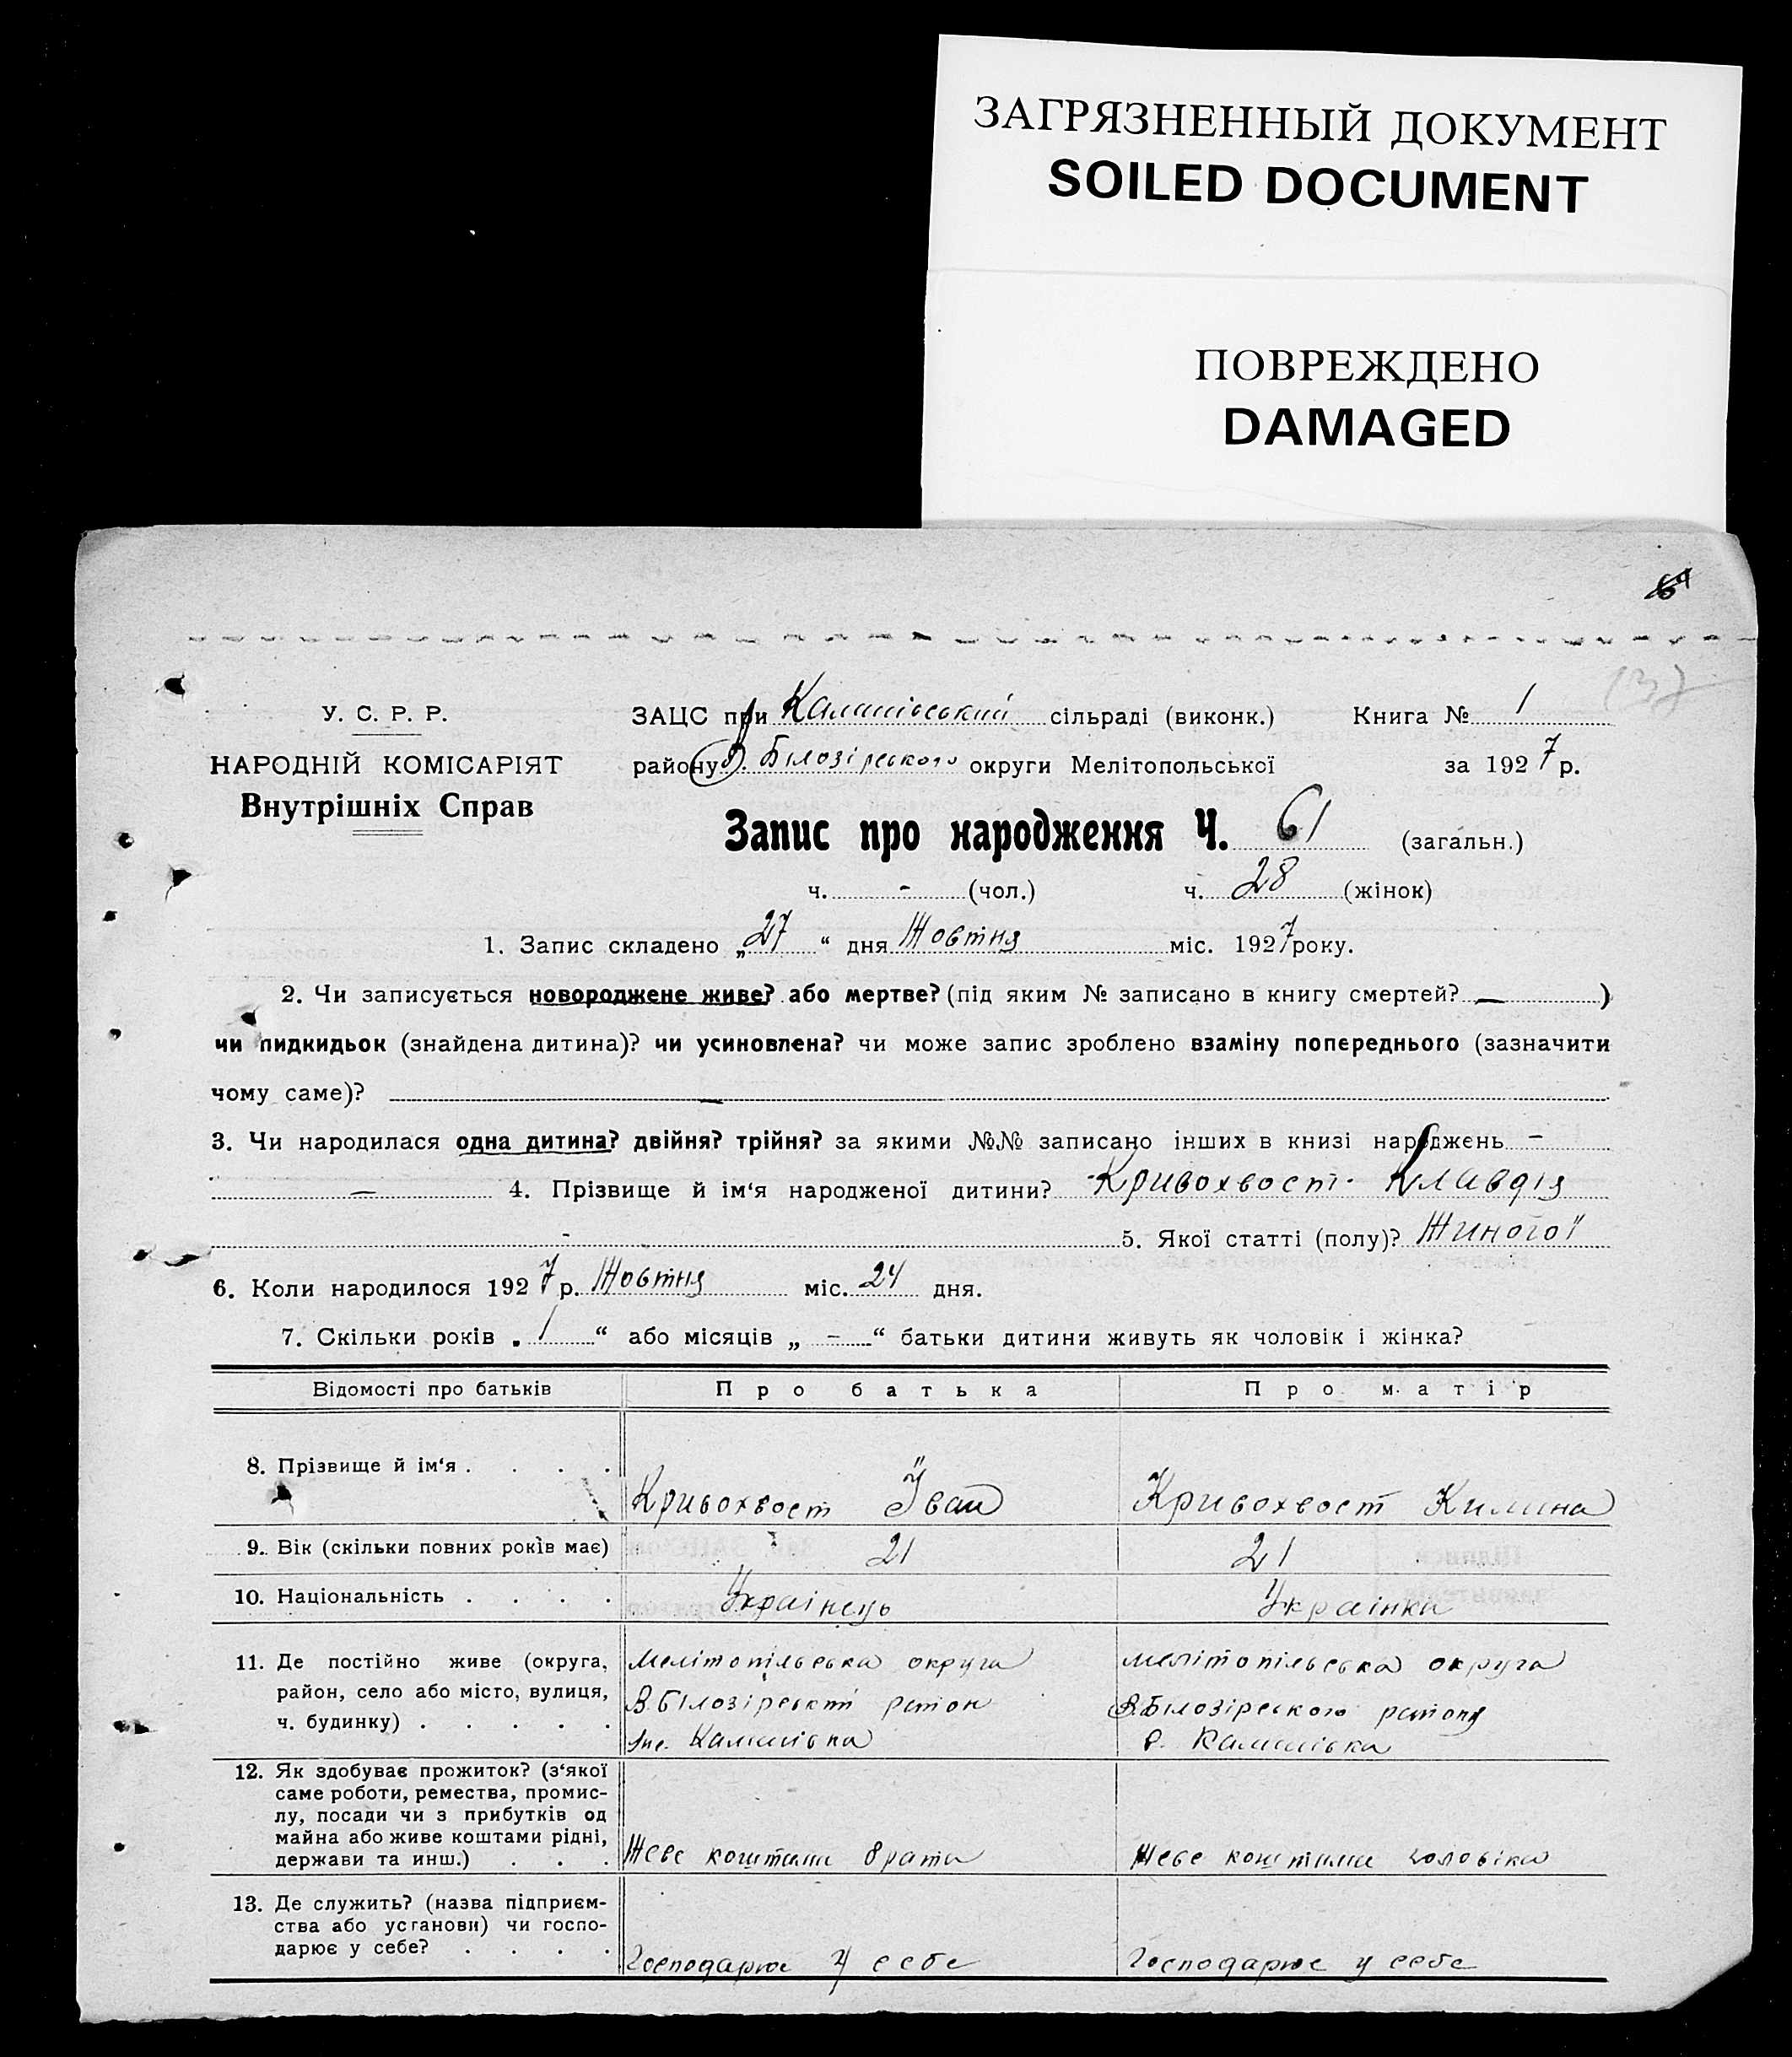 ЗАГРЯЗНЕННЫЙ ДОКУМЕНТ
SOILED DOCUMENT
ПОВРЕЖДЕНО
DAMAGED
(37
У. С. Р. Р.
НАРОДНІЙ КОМІСАРІЯТ
Внутрішніх Справ
ЗАЦС при сільраді (виконк.) Книга № 1
району В. Білозірського округи Мелітопольської за 1927 р.
Запис про народження Ч. 61 (загальн.)
ч. - (чол.) ч. 28 (жінок)
1. Запис складено „27“ дня Жовтня міс. 1927 року.
2. Чи записується новороджене живе? або мертве? (під яким № записано в книгу смертей? — )
чи пидкидьок (знайдена дитина)? чи усиновлена? чи може запис зроблено взаміну попереднього (зазначити
чому саме)? —
3. Чи народилася одна дитина? двійня? трійня? за якими №№ записано інших в книзі народжень -
— 4. Прізвище й ім‘я народженої дитини? Кривохвост Клавдія
- 5. Якої статті (полу)? Жиногої
6. Коли народилося 1927 р. Жовтня міс. 24 дня.
7. Скільки років „ 1 “ або місяців „ - “ батьки дитини живуть як чоловік і жінка?
Відомості про батьків Про батька Про матір
8. Прізвище й ім‘я . . . . Кривохвост Іван Кривохвост Килина
9. Вік (скільки повних років має) 21 21
10. Національність . . . . Українець Українка
11. Де постійно живе (округа, Мелітопільська округа Мелітопільська округа
район, село або місто, вулиця, В. Білозірський район В. Білозірского району
ч. будинку) . . . . .
12. Як здобуває прожиток? (з‘якої
саме роботи, ремества, промис-
лу, посади чи з прибутків од
майна або живе коштами рідні,
держави та инш.) . . . Жеве коштами брата Жеве коштами чоловіка
13. Де служить? (назва підприєм-
ства або установи) чи госпо-
дарює у себе? . . . . Господарює у себе Господарює у себе